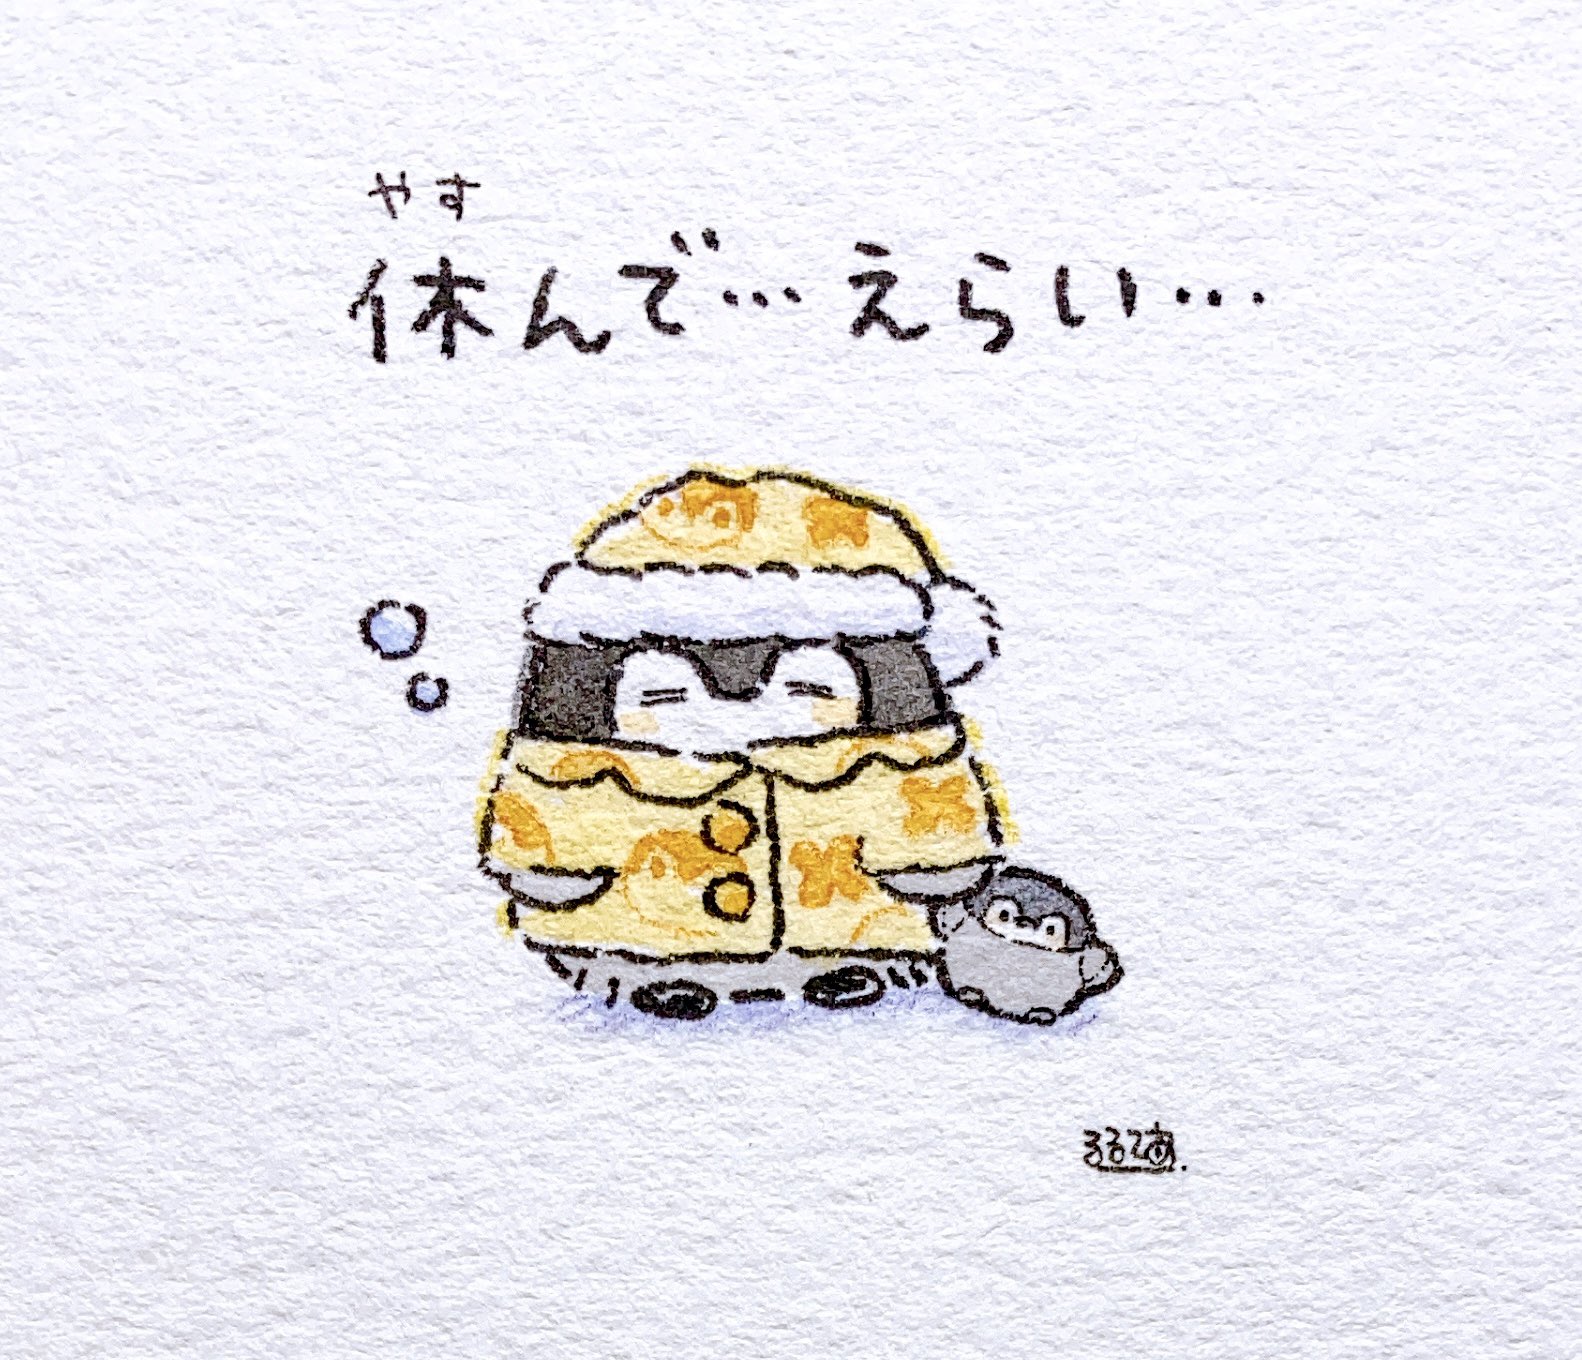 やす
休んで…えらい…
るるてあ.